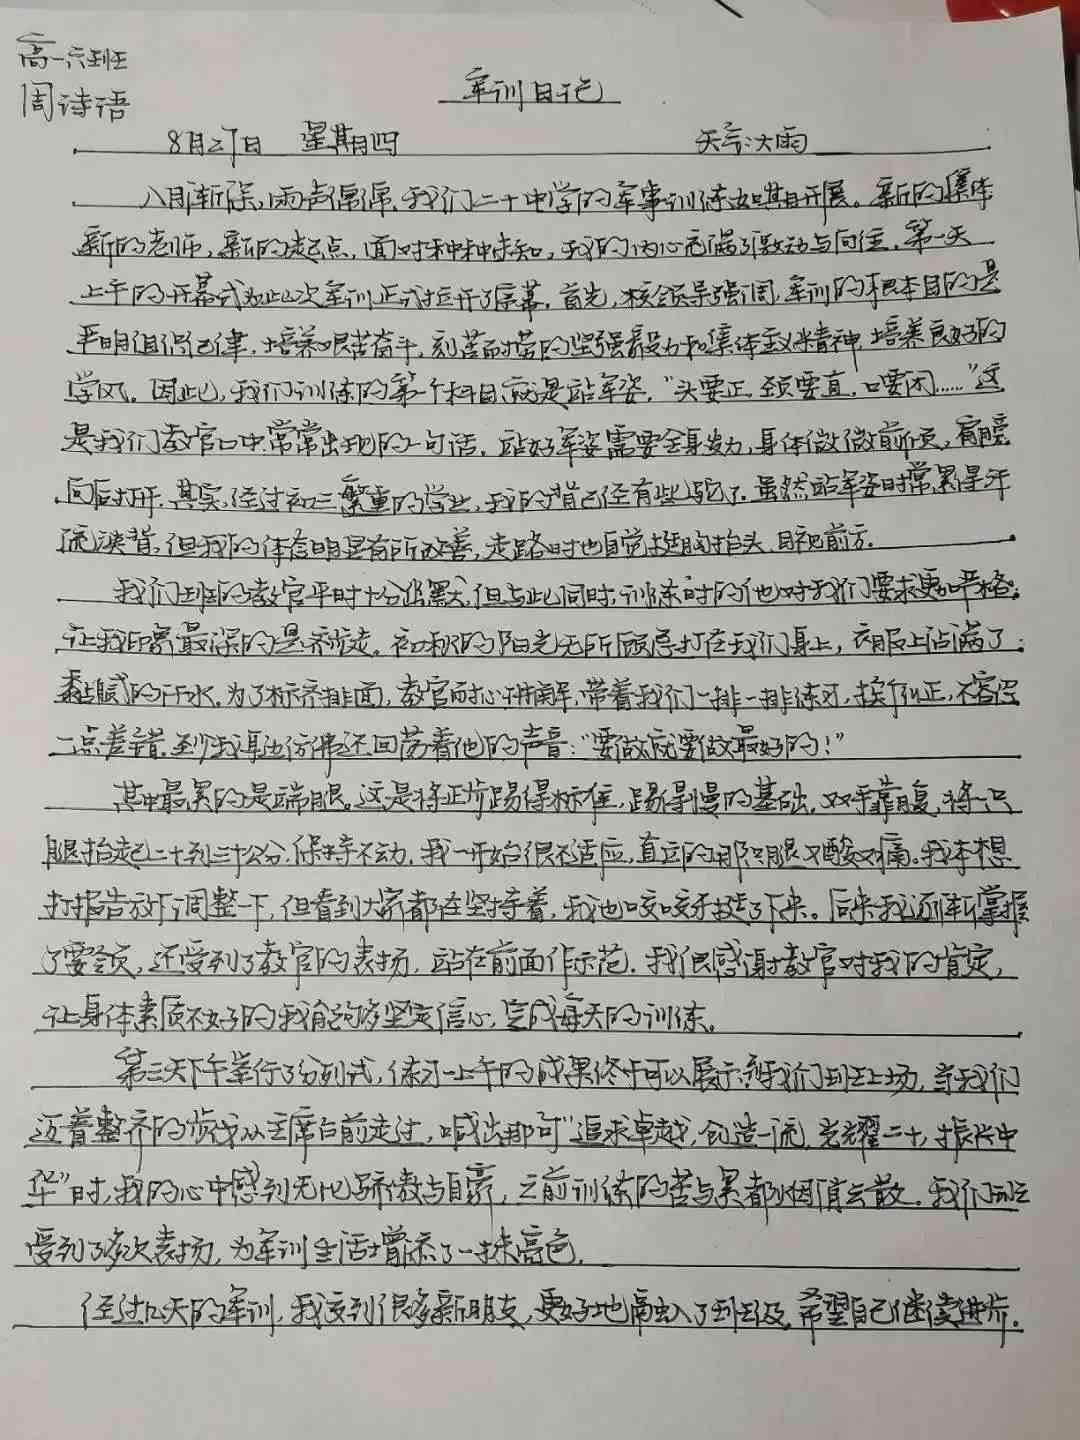 高一六班
周诗语
军训日记
8月27日 星期四 天气:大雨
八月渐深,雨声僝僝,我们二十中学的军事训练如期开展。新的集体
新的老师,新的起点,面对种种未知,我的内心充满了激动与向往。第一天
上午的开幕式为此次军训正式拉开了序幕。首先,校领导强调,军训的根本目的是
严明组织纪律,培养艰苦奋斗,刻苦耐劳的坚强毅力和集体主义精神,培养良好的
学风。因此,我们训练的第一个科目就是站军姿,“头要正,颈要直,口要闭……”这
是我们教官口中常常出现的一句话。站好军姿需要全身发力,身体微微前倾,肩膀
向后打开。其实,经过初三繁重的学业,我的背已经有些驼了。虽然站军姿时常累得汗
流浃背,但我的体态明显有所改善,走路时也自觉挺胸抬头,目视前方。
我们班的教官平时十分幽默,但与此同时,训练时的他对于我们要求更严格;
让我印象最深的是齐步走。初秋的阳光无所顾忌打在我们身上,衣服上沾满了
黏腻的汗水。为了标齐排面,教官耐心讲解,带着我们一排一排练习,挨个纠正,不容
一点差错。至今我耳边仿佛还回荡着他的声音:“要做就要做最好的!”
其中最累的是端腿。这是将正步踢得标准,踢得慢的基础。双手靠腹,将一只
腿抬起二十到三十公分,保持不动。我一开始很不适应,直立的那只腿又酸又痛。我本想
打报告放下调整一下,但看到大家都在坚持着,我也咬咬牙挺了下来。后来我逐渐掌握
了要领,还受到了教官的表扬,站在前面作示范。我很感谢教官对我的肯定,
让身体素质不好的我能够坚定信心,完成每天的训练。
第三天下午举行了分列式,练习一上午的成果终于可以展示。到我们班上场,当我们
迈着整齐的步伐从主席台前走过,喊出那句“追求卓越,创造一流,光耀二十,振兴中
华”时,我的心中感到无比骄傲与自豪,之前训练的苦与累都烟消云散。我们班
受到了多次表扬,为军训生活增添了一抹亮色。
经过几天的军训,我交到很多新朋友,更好地融入了班级,希望自己继续进步。